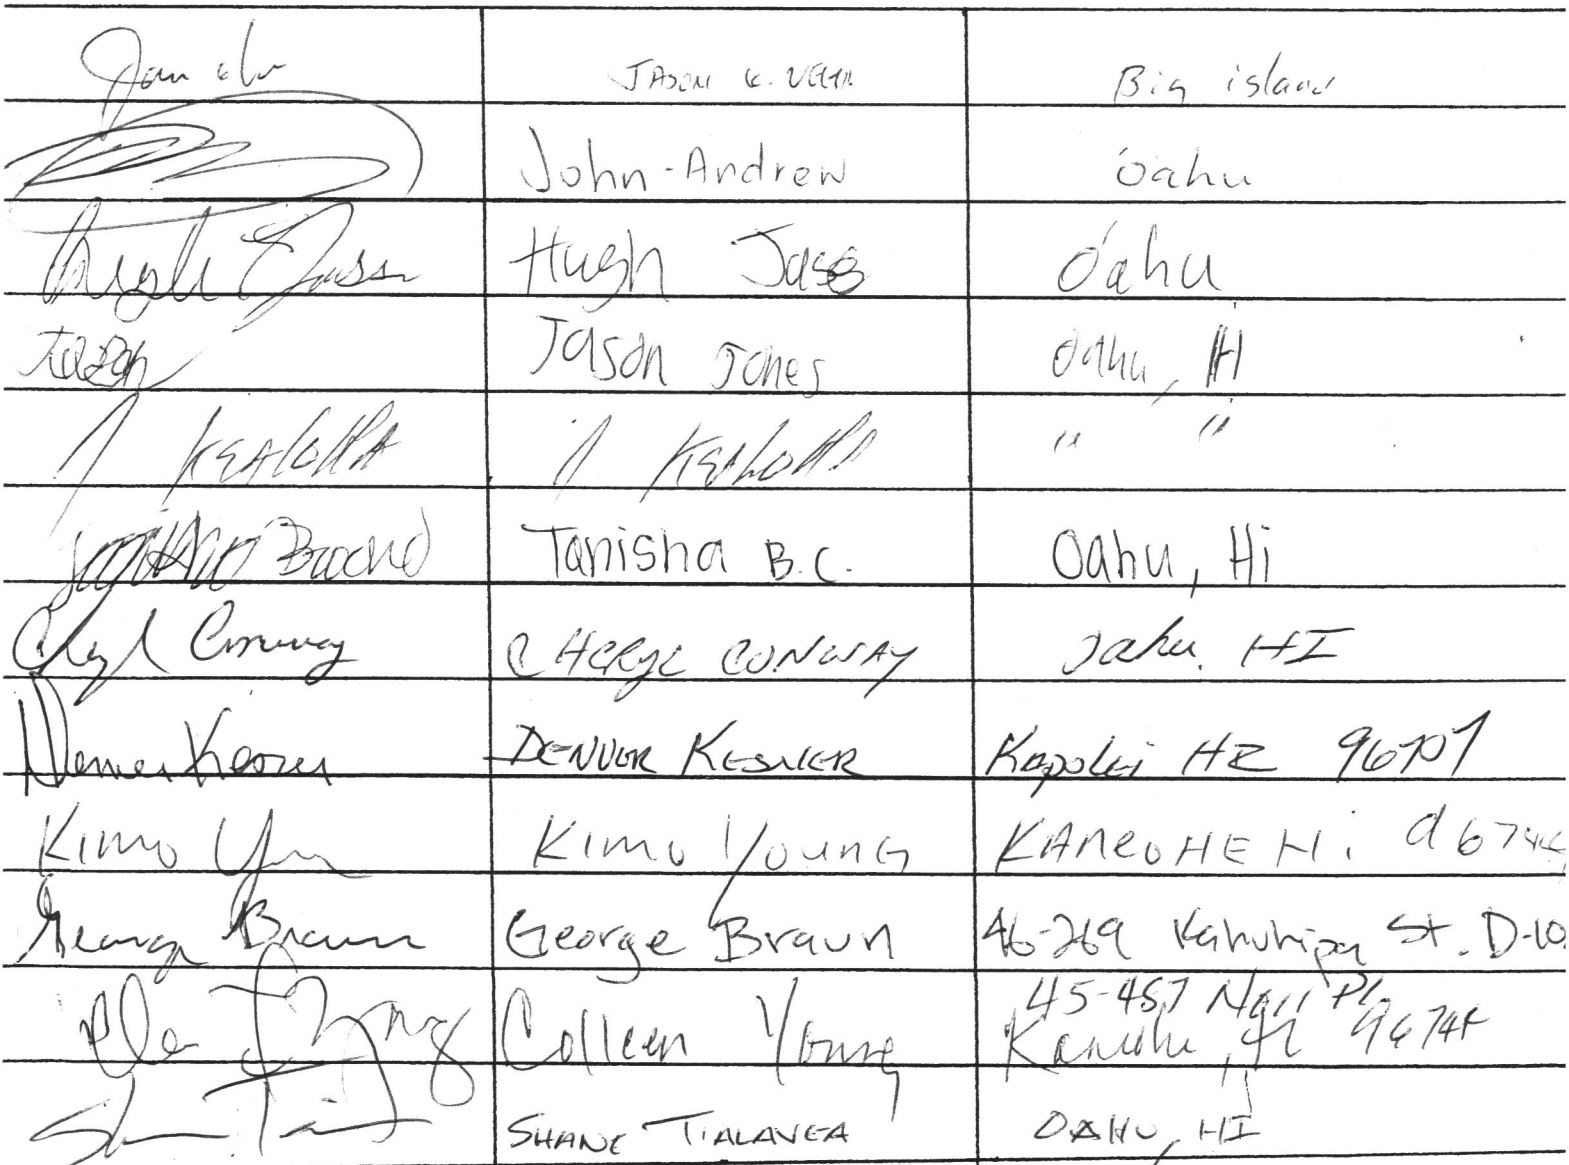 JASON K. Big island
John-Andrew Oahu
Hugh Jass Oahu
Jason Jason Jones Oahu, HI
J KEALOHA J KEALOHA " "
Tanisha B.C. Oahu, Hi
Cheryl Conway CHERYL CONWAY Oahu, HI
DENVER Kapolei HI 96707
Kimo Kimo Young KANEOHE Hi. 96744
George Braun George Braun 46-269 Kahuhipa St. D-10
45-457 Pl
Colleen Young Kaneohe, HI 96744
SHANE TIALAVEA OAHU, HI